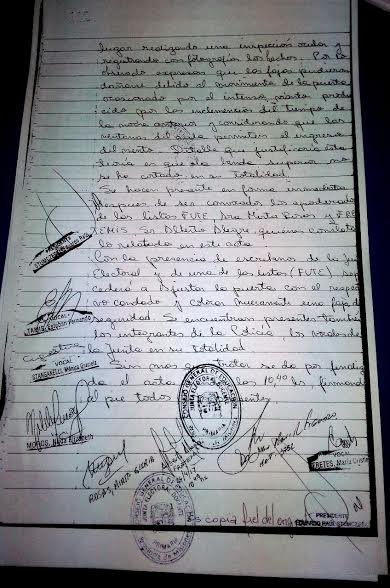 lugar realizando una inspección ocular y
registrando con fotografía los hechos. Por lo
observado expresan que las fajas pudieron
dañarse debido al movimiento de la puerta
ocasionado por el intenso viento produ
cido por las inclemencias del tiempo de
la noche anterior y considerando que las
ventanas del aula permiten el ingreso
del viento. Detalle que justificaría esta
teoría es que la banda superior no
se ha cortado en su totalidad.
Se hacen presente en forma inmediata
después de ser convocados los apoderados
de las listas FUTE, Sra Mirta Rosas y FRE
TEMIS, Sr Alberto Alegre, quienes constatan
lo relatado en este acta.
Con la presencia de escribano de la Junta
Electoral y de una de las listas (FUTE) se pro
cederá a ajustar la puerta con el respecti
vo candado y colocar nuevamente una faja de
seguridad. Se encuentran presentes también
los integrantes de la Policía, los vocales de
la Junta en su totalidad
Sin más que tratar se da por finaliza
da el acta las 10,40 hs, firmando
al pie todos presentes.
VOCAL
VOCAL
VOCAL
ROSAS, MIRTA GLORIA
VOCAL
CONSEJO GENERAL DE EDUCACION
JUNTA ELECTORAL
PRIMARIA
CONSEJO GENERAL DE EDUCACION
JUNTA ELECTORAL
PRIMARIA
Es copia fiel del orig
PRESIDENTE